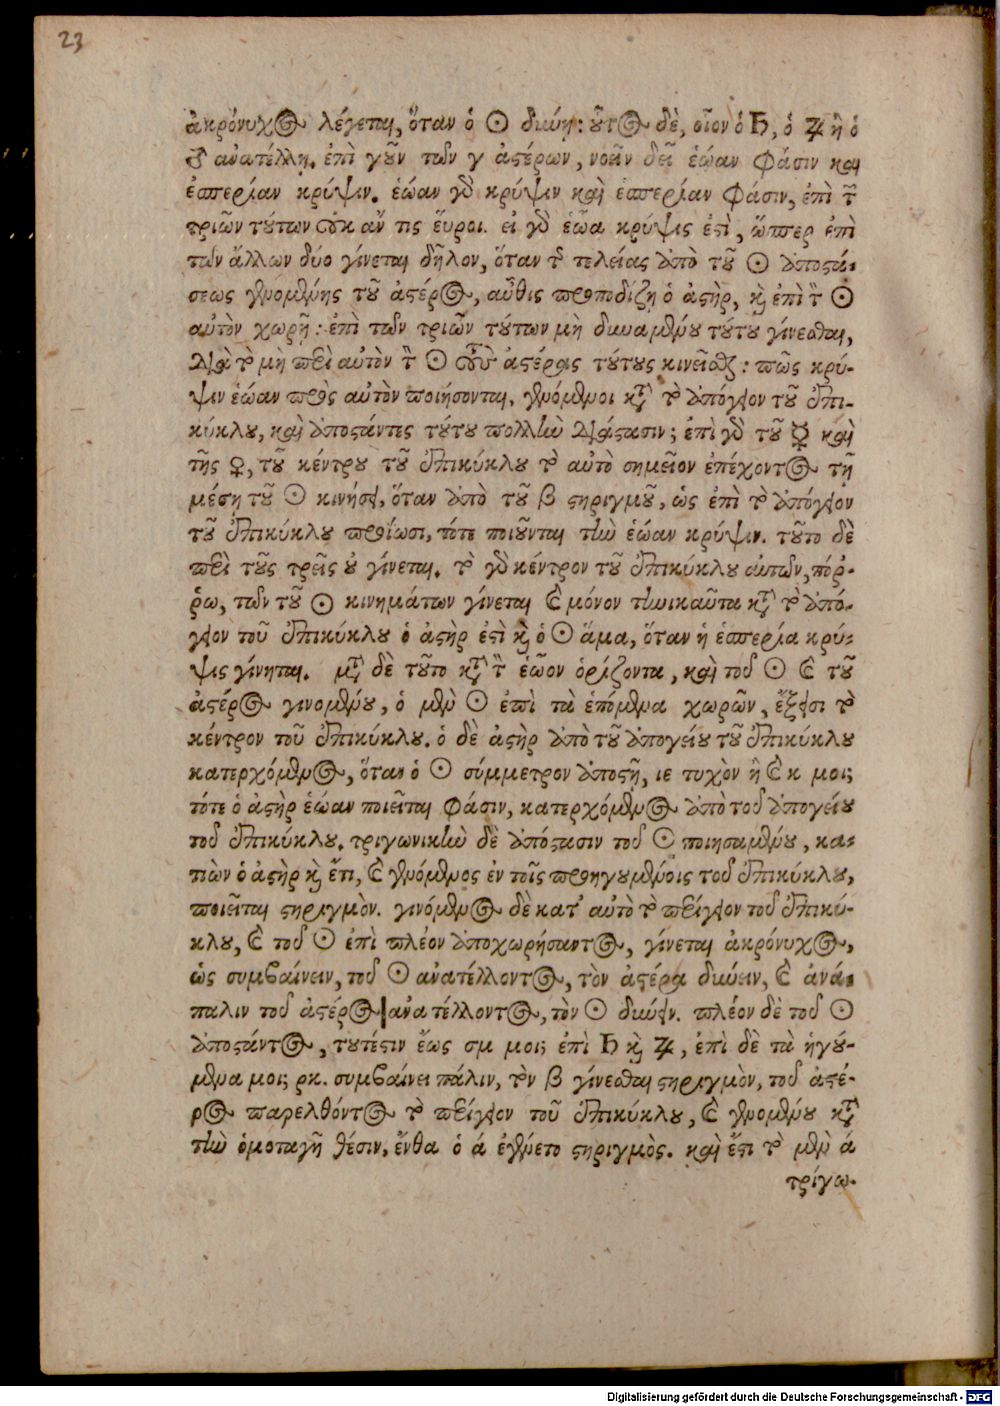 23
ἀκρόνυχος λέγεται, ὅταν ὁ ☉ δύνῃ: οὗτος δὲ, οἷον ὁ ♄, ὁ ♃ ἢ ὁ
♂ ἀνατέλλῃ. ἐπὶ γοῦν τῶν γ ἀστέρων, νοεῖν δεῖ ἑῴαν φάσιν καὶ
ἑσπερίαν κρύψιν. ἑῴαν γὰρ κρύψιν καὶ ἑσπερίαν φάσιν, ἐπὶ τῶν
τριῶν τούτων οὐκ ἄν τις εὕροι. εἰ γὰρ ἑῴα κρύψις ἐστὶ, ὥσπερ ἐπὶ
τῶν ἄλλων δύο γίνεται δῆλον, ὅταν τῆς τελείας ἀπὸ τοῦ ☉ ἀποστά-
σεως γενομένης τοῦ ἀστέρος, αὖθις προποδίζῃ ὁ ἀστὴρ, καὶ ἐπὶ τὸν ☉
αὐτὸν χωρῇ: ἐπὶ τῶν τριῶν τούτων μὴ δυναμένου τούτου γίνεσθαι,
διὰ τὸ μὴ περὶ αὐτὸν τὸν ☉ τοὺς ἀστέρας τούτους κινεῖσθαι: πῶς κρύ-
ψιν ἑῴαν πρὸς αὐτὸν ποιήσονται, γενόμενοι κατὰ τὸ ἀπόγειον τοῦ ἐπι-
κύκλου, καὶ ἀποστάντες τούτου πολλὴν διάστασιν; ἐπὶ γὰρ τοῦ ☿ καὶ
τῆς ♀, τοῦ κέντρου τοῦ ἐπικύκλου τὸ αὐτὸ σημεῖον ἐπέχοντος τῇ
μέσῃ τοῦ ☉ κινήσει, ὅταν ἀπὸ τοῦ β στηριγμοῦ, ὡς ἐπὶ τὸ ἀπόγειον
τοῦ ἐπικύκλου προΐωσι, τότε ποιοῦνται τὴν ἑῴαν κρύψιν. τοῦτο δὲ
περὶ τοὺς τρεῖς οὐ γίνεται. τὸ γὰρ κέντρον τοῦ ἐπικύκλου αὐτῶν, πόρ-
ρω, τῶν τοῦ ☉ κινημάτων γίνεται καὶ μόνον τηνικαῦτα κατὰ τὸ ἀπό-
γειον τοῦ ἐπικύκλου ὁ ἀστὴρ ἐστὶ καὶ ὁ ☉ ἅμα, ὅταν ἡ ἑσπερία κρύ-
ψις γίνηται. μετὰ δὲ τοῦτο κατὰ τὸν ἑῷον ὁρίζοντα, καὶ τοῦ ☉ καὶ τοῦ
ἀστέρος γινομένου, ὁ μὲν ☉ ἐπὶ τὰ ἑπόμενα χωρῶν, ἔξεισι τὸ
κέντρον τοῦ ἐπικύκλου. ὁ δὲ ἀστὴρ ἀπὸ τοῦ ἀπογείου τοῦ ἐπικύκλου
κατερχόμενος, ὅταν ὁ ☉ σύμμετρον ἀποστῇ, ιε τυχὸν ἢ καὶ κ μοι;
τότε ὁ ἀστὴρ ἑῴαν ποιεῖται φάσιν, κατερχόμενος ἀπὸ τοῦ ἀπογείου
τοῦ ἐπικύκλου. τριγωνικὴν δὲ ἀπόστασιν τοῦ ☉ ποιησαμένου, κα-
τιὼν ὁ ἀστὴρ καὶ ἔτι, καὶ γενόμενος ἐν τοῖς προηγουμένοις τοῦ ἐπικύκλου,
ποιεῖται στηριγμὸν. γινόμενος δὲ κατ' αὐτὸ τὸ περίγειον τοῦ ἐπικύ-
κλου, καὶ τοῦ ☉ ἐπὶ πλέον ἀποχωρήσαντος, γίνεται ἀκρόνυχος,
ὡς συμβαίνειν, τοῦ ☉ ἀνατέλλοντος, τὸν ἀστέρα δύνειν, καὶ ἀνά-
παλιν τοῦ ἀστέρος ἀνατέλλοντος, τὸν ☉ δύνειν. πλέον δὲ τοῦ ☉
ἀποστάντος, τουτέστιν ἕως σμ μοι; ἐπὶ ♄ καὶ ♃, ἐπὶ δὲ τὰ ἡγού-
μενα μοι; ρκ. συμβαίνει πάλιν, τὸν β γίνεσθαι στηριγμὸν, τοῦ ἀστέ-
ρος παρελθόντος τὸ περίγειον τοῦ ἐπικύκλου, καὶ γενομένου κατὰ
τὴν ὁμοταγῆ θέσιν, ἔνθα ὁ ά ἐγένετο στηριγμὸς. καὶ ἔστι τὸ μὲν ά
τρίγω-
Digitalisierung gefördert durch die Deutsche Forschungsgemeinschaft - DFG